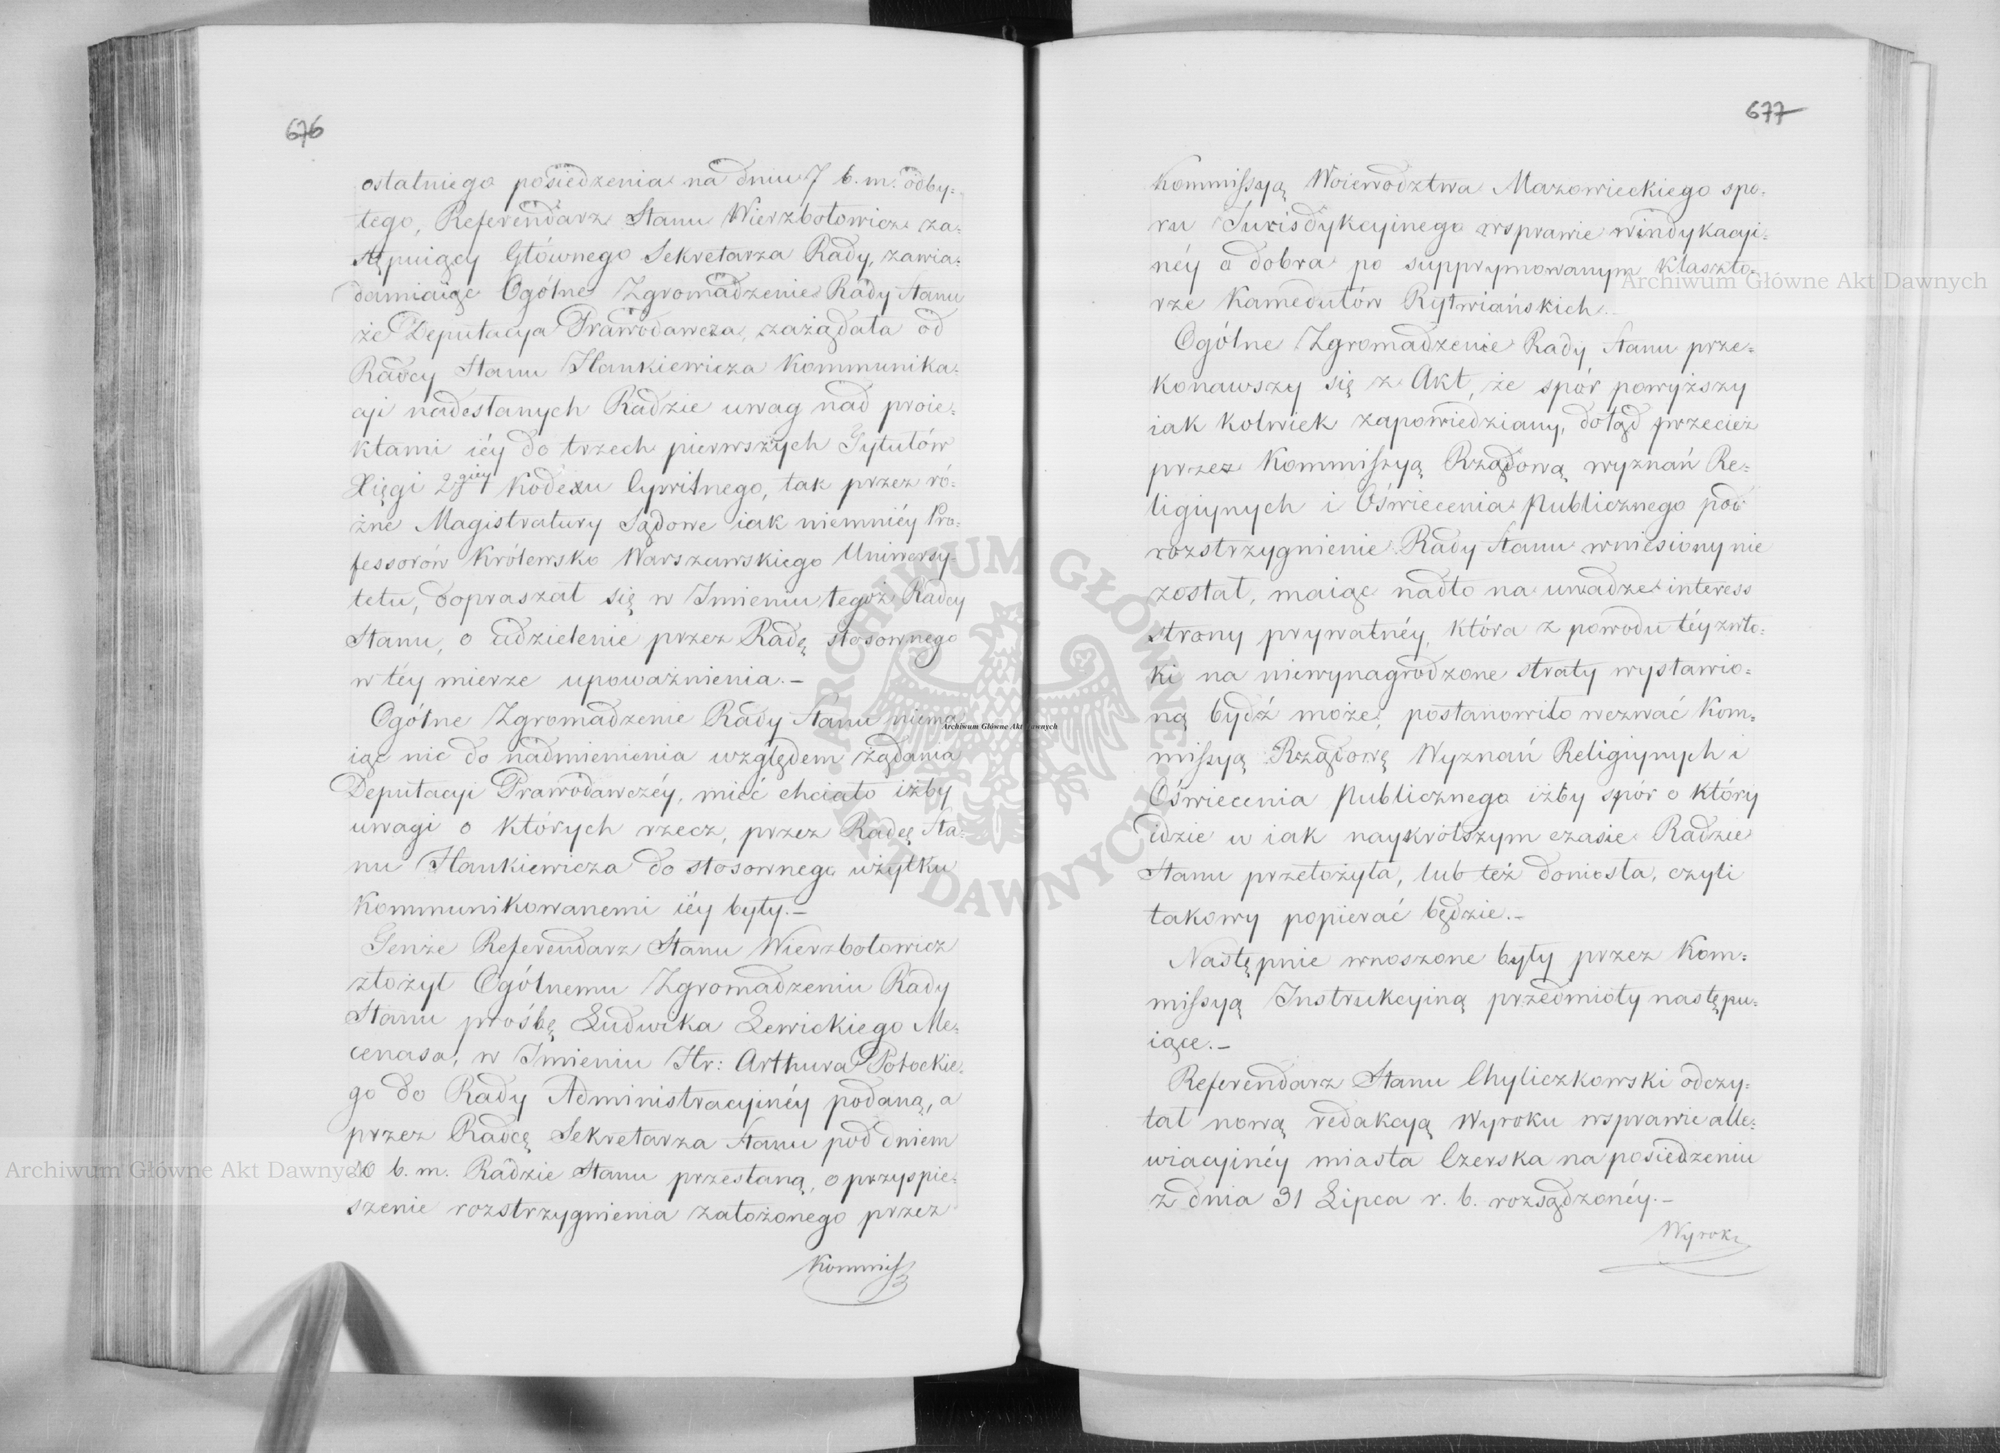 676
ostatniego posiedzenia na dniu 7 b. m. odby-
tego, Referendarz Stanu Wierzbołowicz za-
stępuiący Głównego Sekretarza Rady, zawia-
damiaiąc Ogólne Zgromadzenie Rady Stanu
że Deputacya Prawodawcza, zażądała od
Radcy Stanu Hankiewicza kommunika-
cyi nadesłanych Radzie uwag nad proie-
ktami iéy do trzech pierwszych Tytułów
Xięgi 2giéy Kodexu Cywilnego, tak przez ró-
żne Magistratury Sądowe iak niemniéy Pro-
fessorów Królewsko Warszawskiego Uniwersy-
tetu, dopraszał się w Imieniu tegoż Radcy
Stanu, o udzielenie przez Radę stosownego
w téy mierze upoważnienia.—
Ogólne Zgromadzenie Rady Stanu niema-
iąc nic do nadmienienia względem żądania
Deputacyi Prawodawczéy, mieć chciało iżby
uwagi o których rzecz, przez Radcę Sta-
nu Hankiewicza do stosownego użytku
kommunikowanemi iéy były.—
Tenże Referendarz Stanu Wierzbołowicz
złożył Ogólnemu Zgromadzeniu Rady
Stanu prośbę Ludwika Lewickiego Me-
cenasa, w Imieniu Hr: Arthura Potockie-
go do Rady Administracyinéy podaną, a
przez Radcę Sekretarza Stanu pod dniem
10 b. m. Radzie Stanu przesłaną, o przyspie-
szenie rozstrzygnienia założonego przez
Kommiss
677
Kommissyą Woiewództwa Mazowieckiego spo-
ru Jurisdykcyinego w sprawie windykacyi-
néy o dobra po supprymowanym klaszto-
rze Kamedułów Rytwiańskich.
Ogólne Zgromadzenie Rady Stanu prze-
konawszy się z Akt, że spór powyższy
iak kolwiek zapowiedziany, dotąd przecież
przez Kommissyą Rządową wyznań Re-
ligiynych i Oświecenia Publicznego pod
rozstrzygnienie Rady Stanu wniesiony nie
został, maiąc nadto na uwadze interess
strony prywatnéy, która z powodu téy zwło-
ki na niewynagrodzone straty wystawio-
ną bydź może, postanowiło wezwać Kom-
missyą Rządową Wyznań Religiynych i
Oświecenia Publicznego iżby spór o który
idzie w iak naykrótszym czasie Radzie
Stanu przełożyła, lub też doniosła, czyli
takowy popierać będzie.—
Następnie wnoszone były przez Kom-
missyą Instrukcyiną przedmioty następu-
iące.—
Referendarz Stanu Chyliczkowski odczy-
tał nową redakcyą Wyroku w sprawie alle-
wiacyinéy miasta Czerska na posiedzeniu
z dnia 31 Lipca r. b. rozsądzonéy.—
Wyrok
Archiwum Główne Akt Dawnych
Archiwum Główne Akt Dawnych
Archiwum Główne Akt Dawnych
ARCHIWUM GŁÓWNE
AKT DAWNYCH